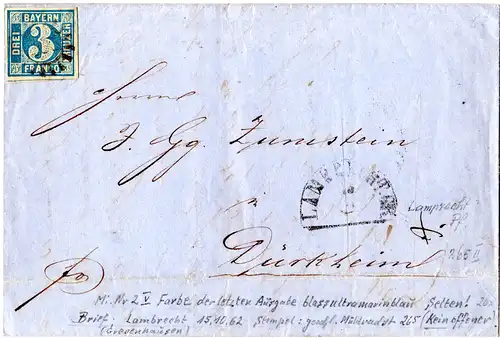 BAYERN
DREI
3
KREUZER
FRANCO
Herrn
J. Gg. Zumstein
LAMBRECHT
Lamprecht
Pf.
Dürkheim
265 II
fro
Mi. Nr 2 V Farbe der letzten Ausgabe blassultramarinblau Selten! 20.
Brief: Lambrecht 15.10.62 Stempel: geschl. Mühlradst 265 (Kein offener)
(Grevenhausen)